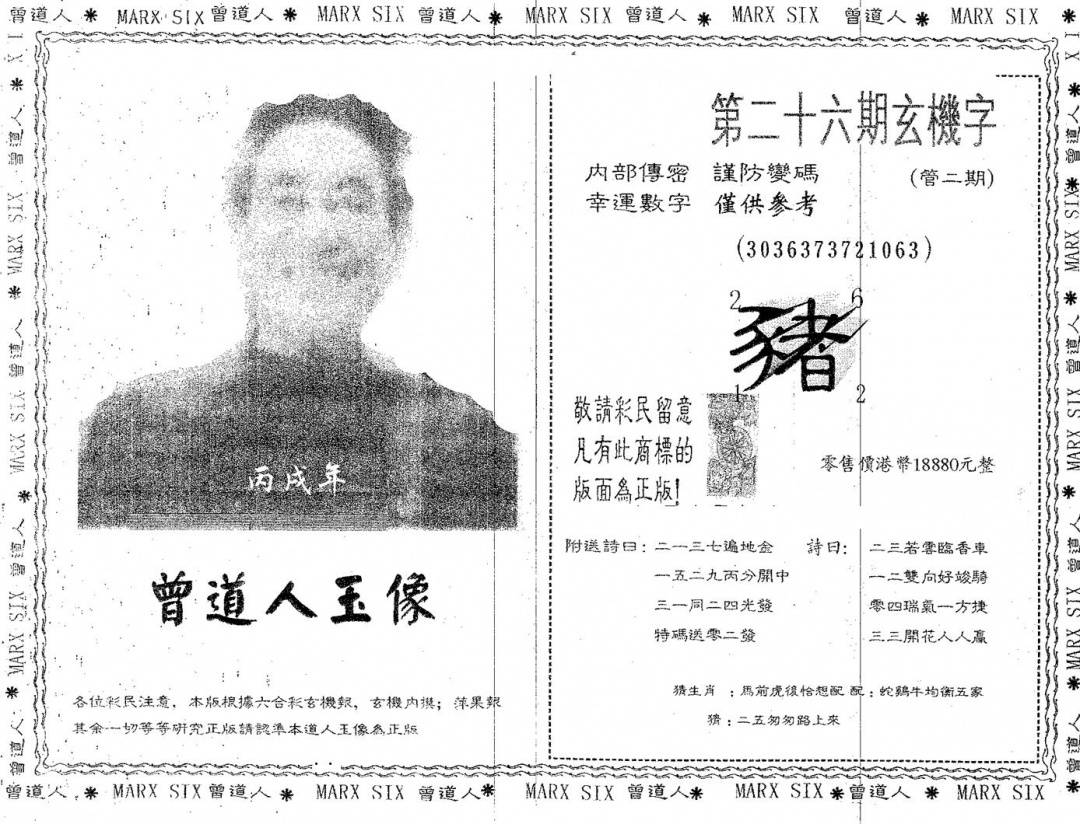 曾道人 * MARX SIX 曾道人 * MARX SIX 曾道人 * MARX SIX 曾道人 * MARX SIX 曾道人 * MARX SIX *
第二十六期玄機字
內部傳密 謹防變碼 (管二期)
幸運數字 僅供參考
(3036373721063)
2 6
豬
1 2
敬請彩民留意
凡有此商標的
版面為正版!
零售價港幣18880元整
丙戌年
曾道人玉像
各位彩民注意，本版根據六合彩玄機報，玄機內摸；萍果報
其余一切等等研究正版請認準本道人玉像為正版
附送詩曰：二一三七遍地金
一五二九丙分開中
三一同二四光發
特碼送零二發
詩曰：二三若雲臨香車
一二雙向好竣騎
零四瑞氣一方捷
三三開花人人贏
猜生肖：馬前虎後恰想配 配：蛇鷄牛均衡五家
猜：二五匆匆路上來
曾道人 * MARX SIX 曾道人 * MARX SIX 曾道人 * MARX SIX 曾道人 * MARX SIX * 曾道人 * MARX SIX *